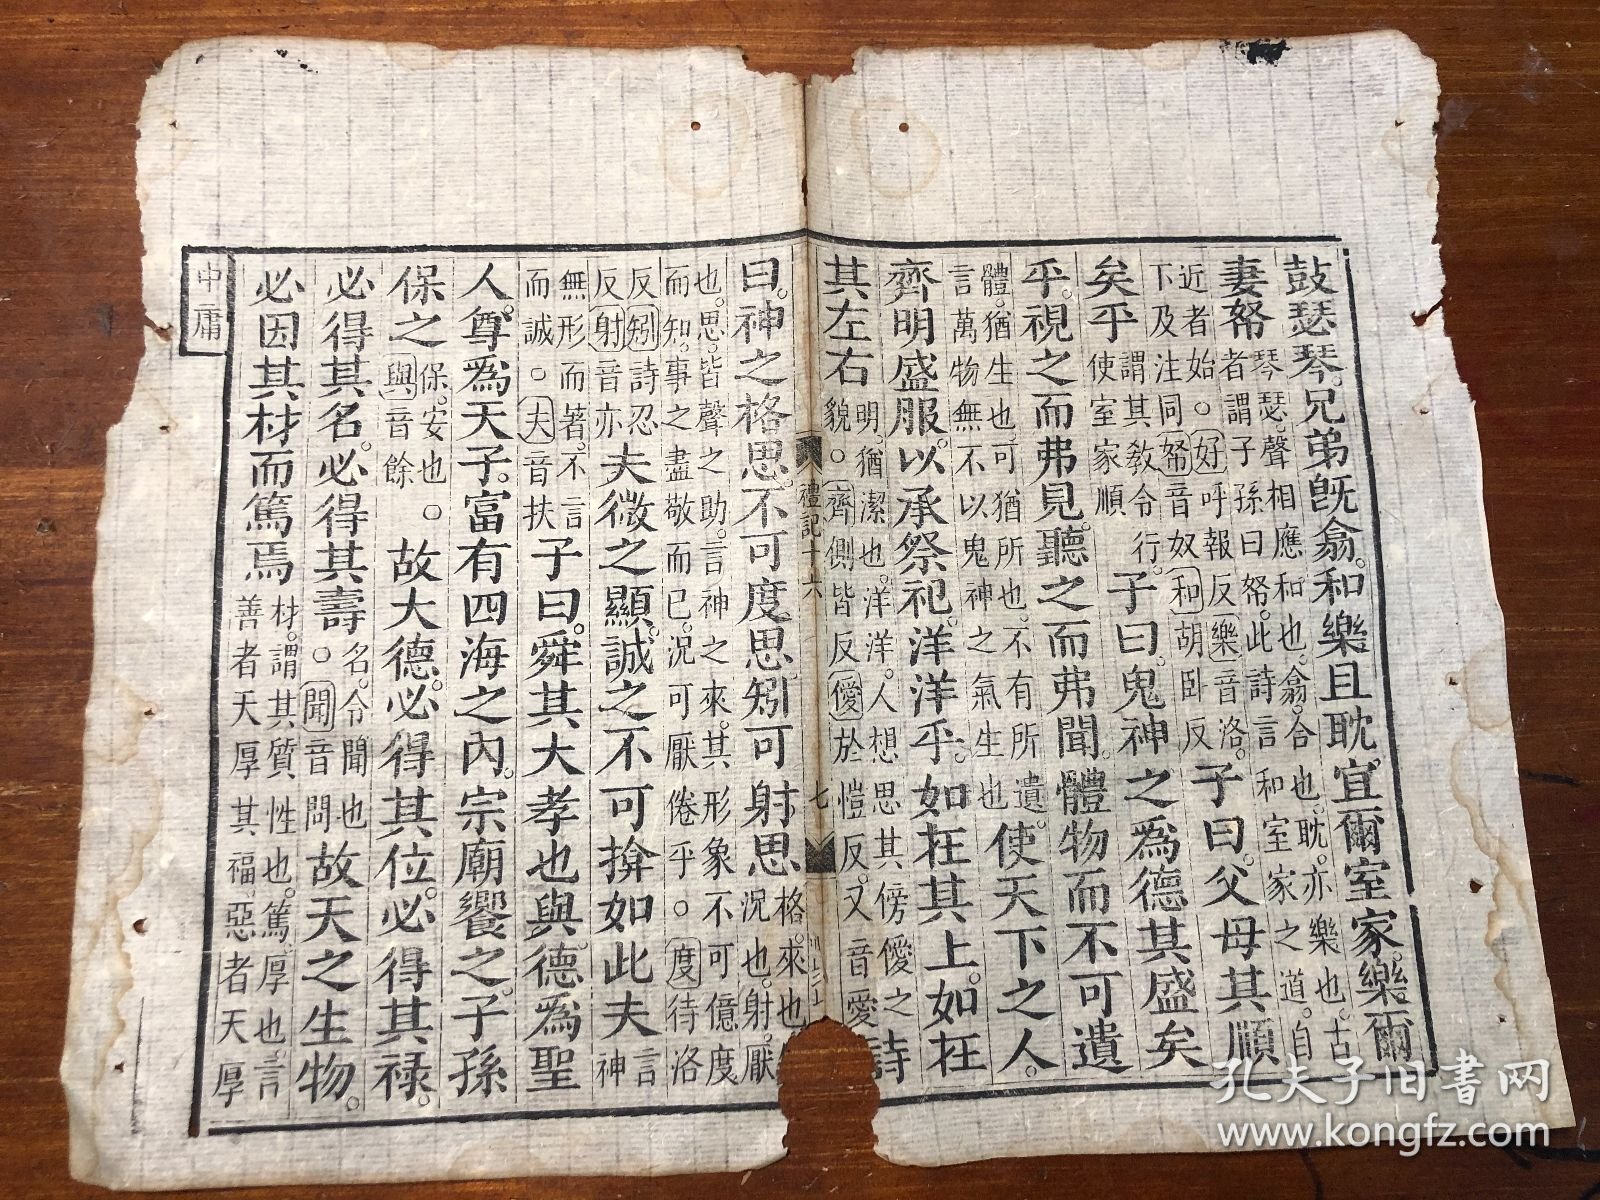 鼓瑟琴。兄弟既翕。和樂且耽。宜爾室家。樂爾
妻帑
琴瑟。聲相應和也。翕。合也。耽。亦樂也。古
者謂子孫曰帑。此詩言和室家之道。自
近者始。○好呼報反樂音洛。
下及注同帑音奴和胡卧反
子曰。父母其順
矣乎
謂其教令行。
使室家順
子曰。鬼神之爲德其盛矣
乎。視之而弗見。聽之而弗聞。體物而不可遺
體。猶生也。可。猶所也。不有所遺。
言萬物無不以鬼神之氣生也
使天下之人。
齊明盛服。以承祭祀。洋洋乎。如在其上。如在
其左右
明。猶潔也。洋洋。人想思其傍僾之
貌。○齊側皆反僾於愷反。又音愛
詩
禮記十六
七
曰。神之格思。不可度思。矧可射思
格。來也
況也。射。厭
也。思。皆聲之助。言神之來。其形象不可億度
而知。事之盡敬而已。況可厭倦乎。○度待洛
反矧詩忍
反射音亦
夫微之顯。誠之不可揜如此夫
言
神
無形而著。不言
而誠。○夫音扶
子曰。舜其大孝也與。德爲聖
人。尊爲天子。富有四海之內。宗廟饗之。子孫
保之
保。安也。○
與音餘
故大德。必得其位。必得其祿。
必得其名。必得其壽。○
名。令聞也
聞音問
故天之生物。
必因其材而篤焉
材。謂其質性也。篤厚也。言
善者天厚其福。惡者天厚
中庸
孔夫子旧書网
www.kongfz.com